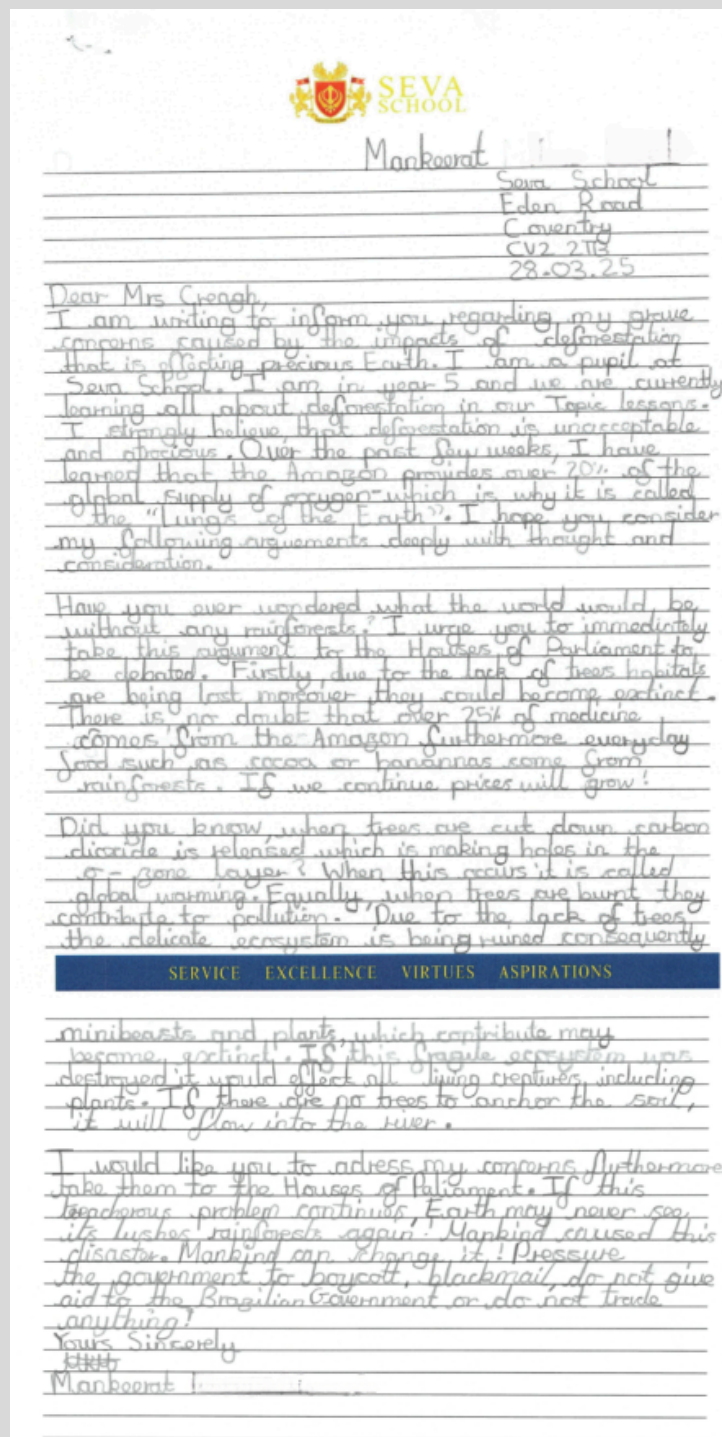 SEVA
SCHOOL
Mankeerat
Seva School
Eden Road
Coventry
CV2 2TB
28.03.25
Dear Mrs Creagh,
I am writing to inform you regarding my grave
concerns caused by the impacts of deforestation
that is effecting precious Earth. I am a pupil at
Seva School. I am in year 5 and we are currently
learning all about deforestation in our Topic lessons.
I strongly believe that deforestation is unacceptable
and atrocious. Over the past few weeks, I have
learned that the Amazon provides over 20% of the
global supply of oxygen-which is why it is called
the "Lungs of the Earth". I hope you consider
my following arguements deeply with thought and
consideration.
Have you ever wondered what the world would be
without any rainforests? I urge you to immediatly
take this argument to the Houses of Parliament to
be debated. Firstly, due to the lack of trees habitats
are being lost moreover they could become extinct.
There is no doubt that over 25% of medicine
comes from the Amazon furthermore everyday
food such as cocoa or banannas come from
rainforests. If we continue prices will grow!
Did you know, when trees are cut down carbon
dioxide is released which is making holes in the
o-zone layer? When this occurs it is called
global warming. Equally, when trees are burnt they
contribute to pollution. Due to the lack of trees
the delicate ecosystem is being ruined consequently
SERVICE EXCELLENCE VIRTUES ASPIRATIONS
minibeasts and plants, which contribute may
become extinct. If this fragile ecosystem was
destroyed it would effect all living creatures, including
plants. If there are no trees to anchor the soil,
it will flow into the river.
I would like you to adress my concerns furthermore
take them to the Houses of Paliament. If this
treacherous problem continues, Earth may never see
its lushes rainforests again! Mankind caused this
disaster. Mankind can change it! Pressure
the government to boycott, blackmail, do not give
aid to the Brazilian Government or do not trade
anything!
Yours Sincerely
Mankeerat